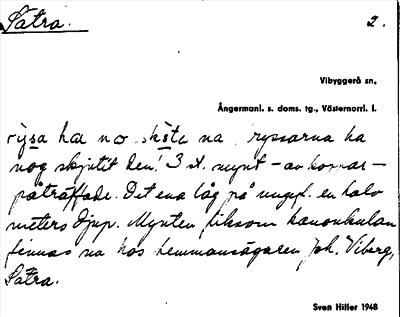 Sätra. 2.
Vibyggerå sn.
Ångermanl. s. doms. tg., Västernorrl. l.
ha no sköte na ryssarna ha
nog skjutit den! 3 st. mynt – av koppar –
påträffade. Det ena låg på ungef. en halv
meters djup. Mynten liksom kanonkulan
finnas nu hos hemmansägaren Joh. Viberg,
Sätra.
Sven Hiller 1948